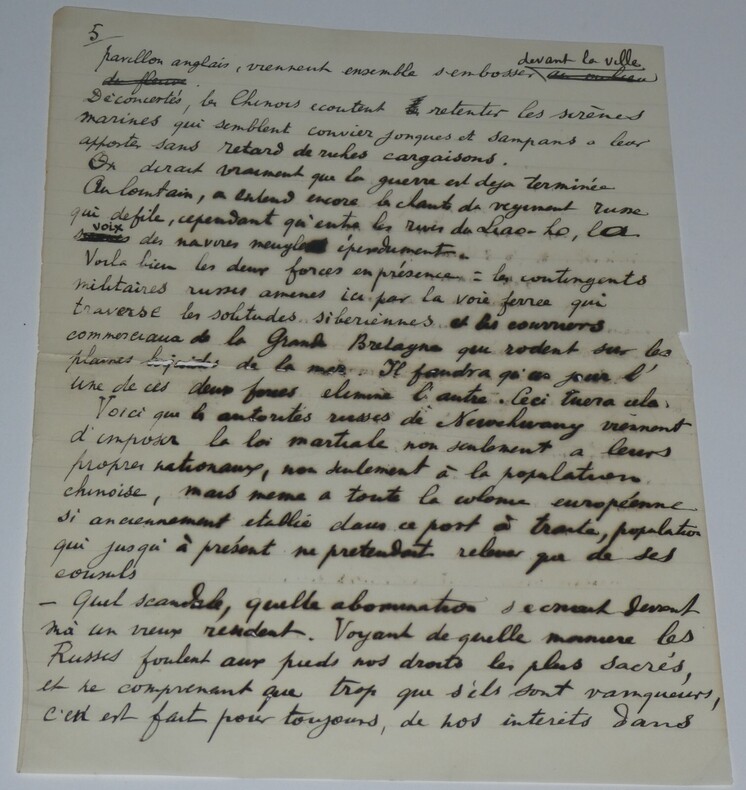 5
pavillon anglais, viennent ensemble s'embosser devant la ville au milieu
du fleuve.
Déconcertés, les Chinois ecoutent retentir les sirènes
marines qui semblent convier jonques et sampans a leur
apporter sans retard de riches cargaisons.
On dirait vraiment que la guerre est deja terminée
Au lointain, on entend encore le chant du regiment russe
qui defile, cependant qu'entre les rives du Liao-ho, la
voix des navires meugle éperdument.
Voila bien les deux forces en présence = les contingents
militaires russes amenes ici par la voie ferree qui
traverse les solitudes siberiennes et les courriers
commerciaux de la Grande Bretagne qui rodent sur les
plaines liquides de la mer. Il faudra qu'un jour l'
une de ces deux forces elimine l'autre. Ceci tuera cela.
Voici que les autorités russes de Newchwang viennent
d'imposer la loi martiale non seulement a leurs
propres nationaux, non seulement à la population
chinoise, mais meme a toute la colonie européenne
si anciennement etablie dans ce port à traite, population
qui jusqu'à présent ne pretendait relever que de ses
consuls
— Quel scandale, quelle abomination s'ecriait devant
moi un vieux resident. Voyant de quelle maniere les
Russes foulent aux pieds nos droits les plus sacrés,
et ne comprenant que trop que s'ils sont vainqueurs,
c'en est fait pour toujours, de nos interets dans